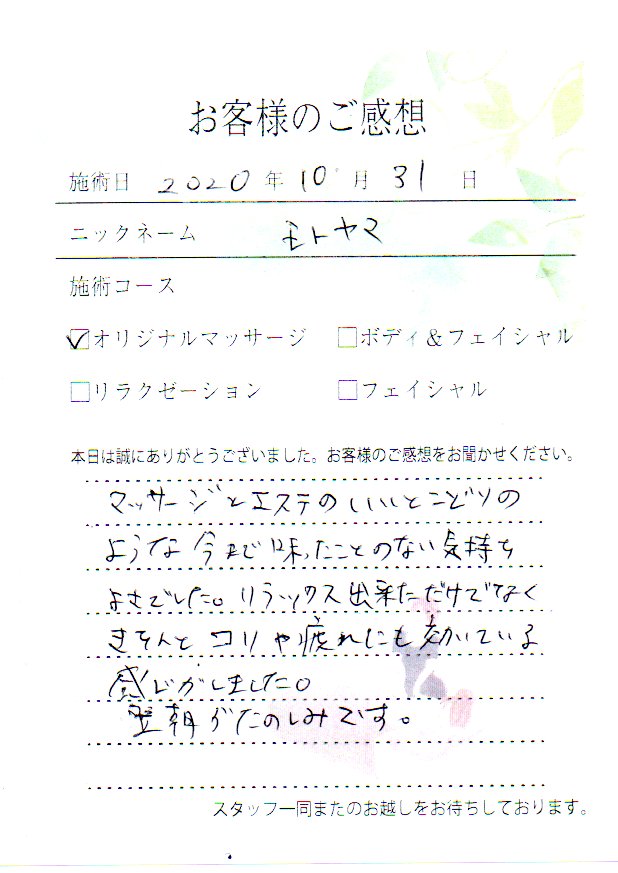 お客様のご感想
施術日 2020年10月31日
ニックネーム モトヤマ
施術コース
☑オリジナルマッサージ □ボディ&フェイシャル
□リラクゼーション □フェイシャル
本日は誠にありがとうございました。お客様のご感想をお聞かせください。
マッサージとエステのいいとこどりの
ような今まで味ったことのない気持ち
よさでした。リラックス出来ただけでなく
きちんとコリや疲れにも効いている
感じがしました。
翌朝がたのしみです。
スタッフ一同またのお越しをお待ちしております。